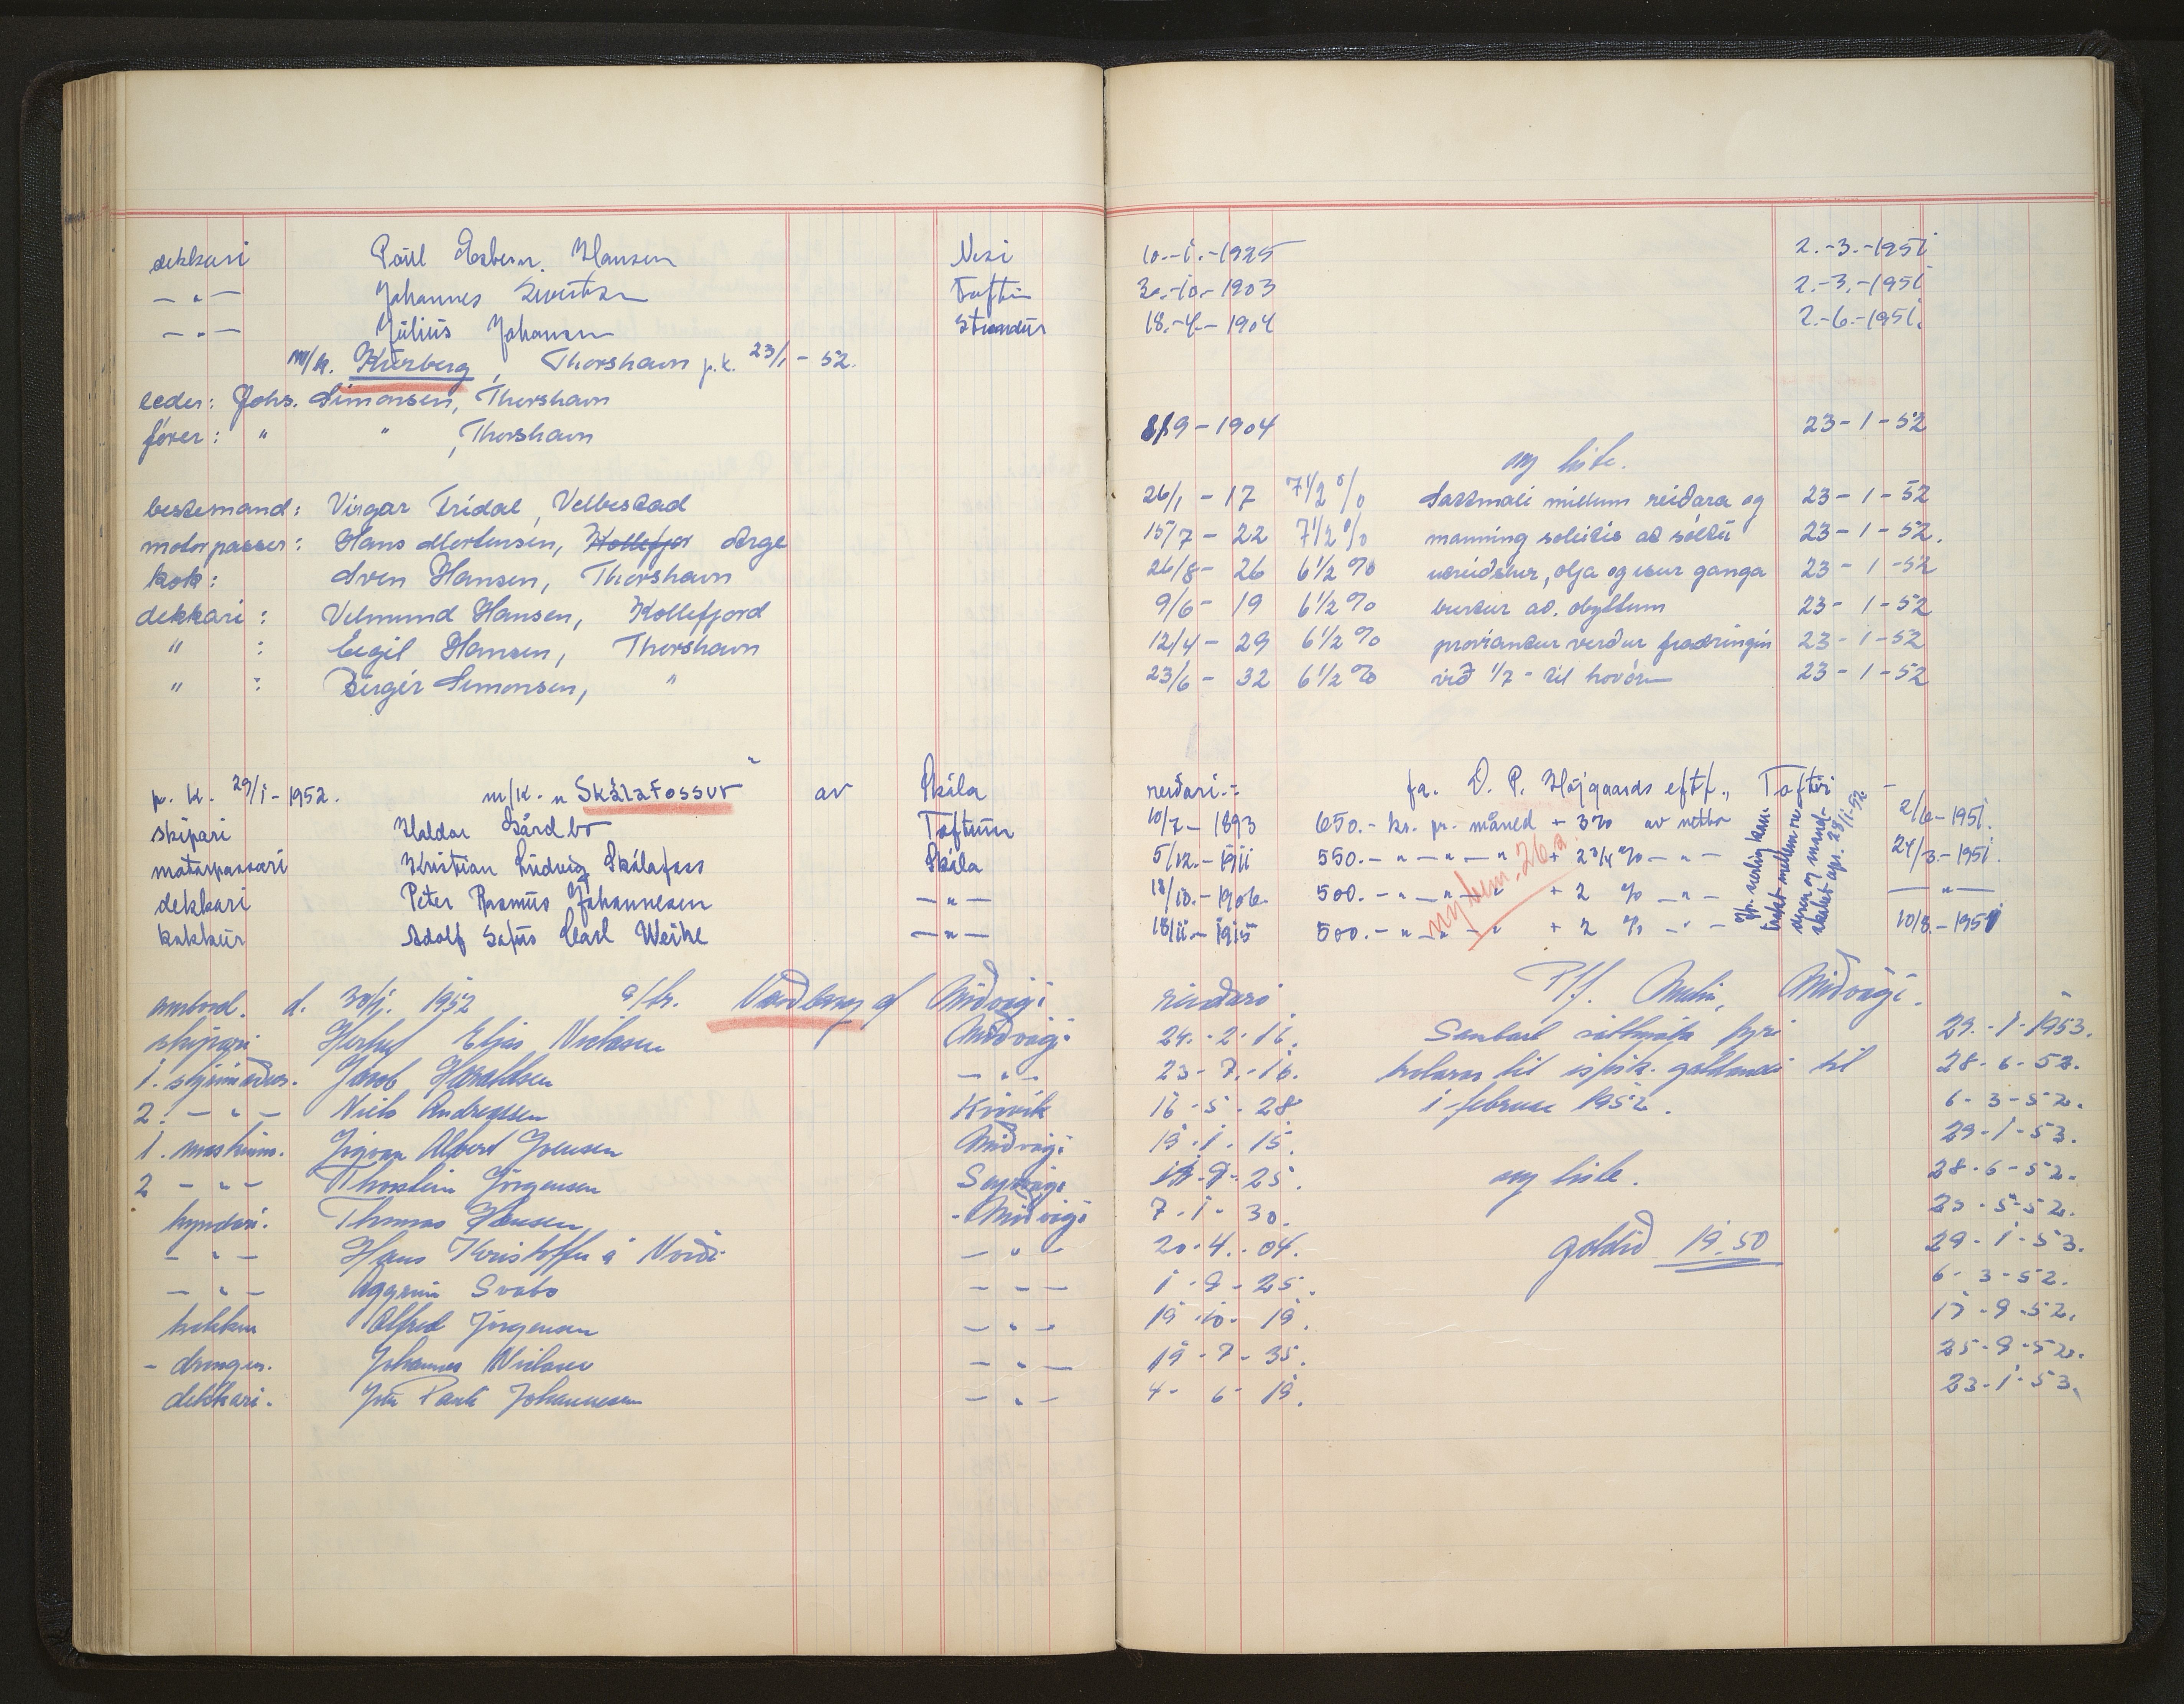 dekkari Poul Esbern. Hansen Nesi 10.-1.-1925 2.-3.-1951
— " — Johannes Sivertsen Toftir 30.-10.-1903 2.-3.-1951
— " — Július Johansen Strendur 18.-4.-1904 2.-6.-1951.
m/k. Kúrberg, Thorshavn p.k. 23/1 - 52.
reder: Johs. Simonsen, Thorshavn
fører: " " , Thorshavn 8/9 - 1904 23 - 1 - 52
ny liste.
bestemand: Virgar Tridal, Velbestad 26/1 - 17 7 1/2 % Sattmáli millum reiðara og 23 - 1 - 52
motorpasser: Hans Mortensen, Kollefjor Arge 15/7 - 22 7 1/2 % manning soleiðis at søltu 23 - 1 - 52.
kok: Sven Hansen, Thorshavn 26/8 - 26 6 1/2 % ureiðskur, olja og ísur ganga 23 - 1 - 52
dekkari: Vilmund Hansen, Kollefjord 9/6 - 19 6 1/2 % burtur av. obyttum 23 - 1 - 52
" : Eigil Hansen, Thorshavn 12/4 - 29 6 1/2 % proviantur verður fradringin 23 - 1 - 52
" : Birgir Simonsen, " 23/6 - 32 6 1/2 % við 1/7 - til hovór 23 - 1 - 52
p. k. 29/1 - 1952. m/k. " Skálafossur " av Skála reiðari.: fa. D. P. Højgaards eftf., Toftir —
skipari Haldor Gárdbo Toftum 10/7 - 1893 650.- kr. pr. måned + 3% av netto 2/6 - 1951.
motorpassari Kristian Ludvig Skálafoss Skála 5/12. - 1911 550.- " — " — " + 2 3/4 % — " — 24/3. - 1951.
dekkari Peter Rasmus Johannesen — " — 18/10. - 1906. 500.- " — " — " + 2 % — " — — " —
kokkur Adolf Carl Weihe — " — 18/11. - 1915 500.- " — " — " + 2 % — " — 10/8. - 1951
mellem re-
og mand-
28/1-52
umbord. d. 30/1. 1952 s/tr. Vardberg af Miðvági reiðari P/f. Miðvági.
skipari Elias Niclasen Miðvági 24. - 2 - 16. Sambært sáttmála fyri 29. - 1 - 1953.
1. stýrimaður. Jacob Haraldsen — " — 23 - 7. - 16. trolarar til ísfisk. galdandi til 28 - 6 - 52.
2. — " — Niels Andreasen Kvívík 16 - 5 - 28 1 februar 1952. 6 - 3 - 52.
1. maskinm. Jigvan Albert Joensen Miðvági 19 - 1 - 15. 29 - 1 - 53.
2 — " — Thorstein Jørgensen Sørvági 11 - 9 - 25. ny liste. 28 - 6 - 52.
kyndari. Thomas Hansen - Miðvági 7 - 1 - 30. 23 - 5 - 52.
— " — Hans Kristoffur á Norði — " — 20 - 4. - 04. goldið 19.50 29 - 1 - 53.
— " — Svabo — " — 1 - 9 - 25. 6 - 3 - 52.
kokkur Alfred Jørgensen — " — 19 - 10 - 19. 17 - 9 - 52.
- drongur. Johannes Niclasen — " — 19 - 7 - 35. 25 - 9 - 52.
dekkari. Johannesen — " — 4 - 6 - 19. 23 - 1 - 53.